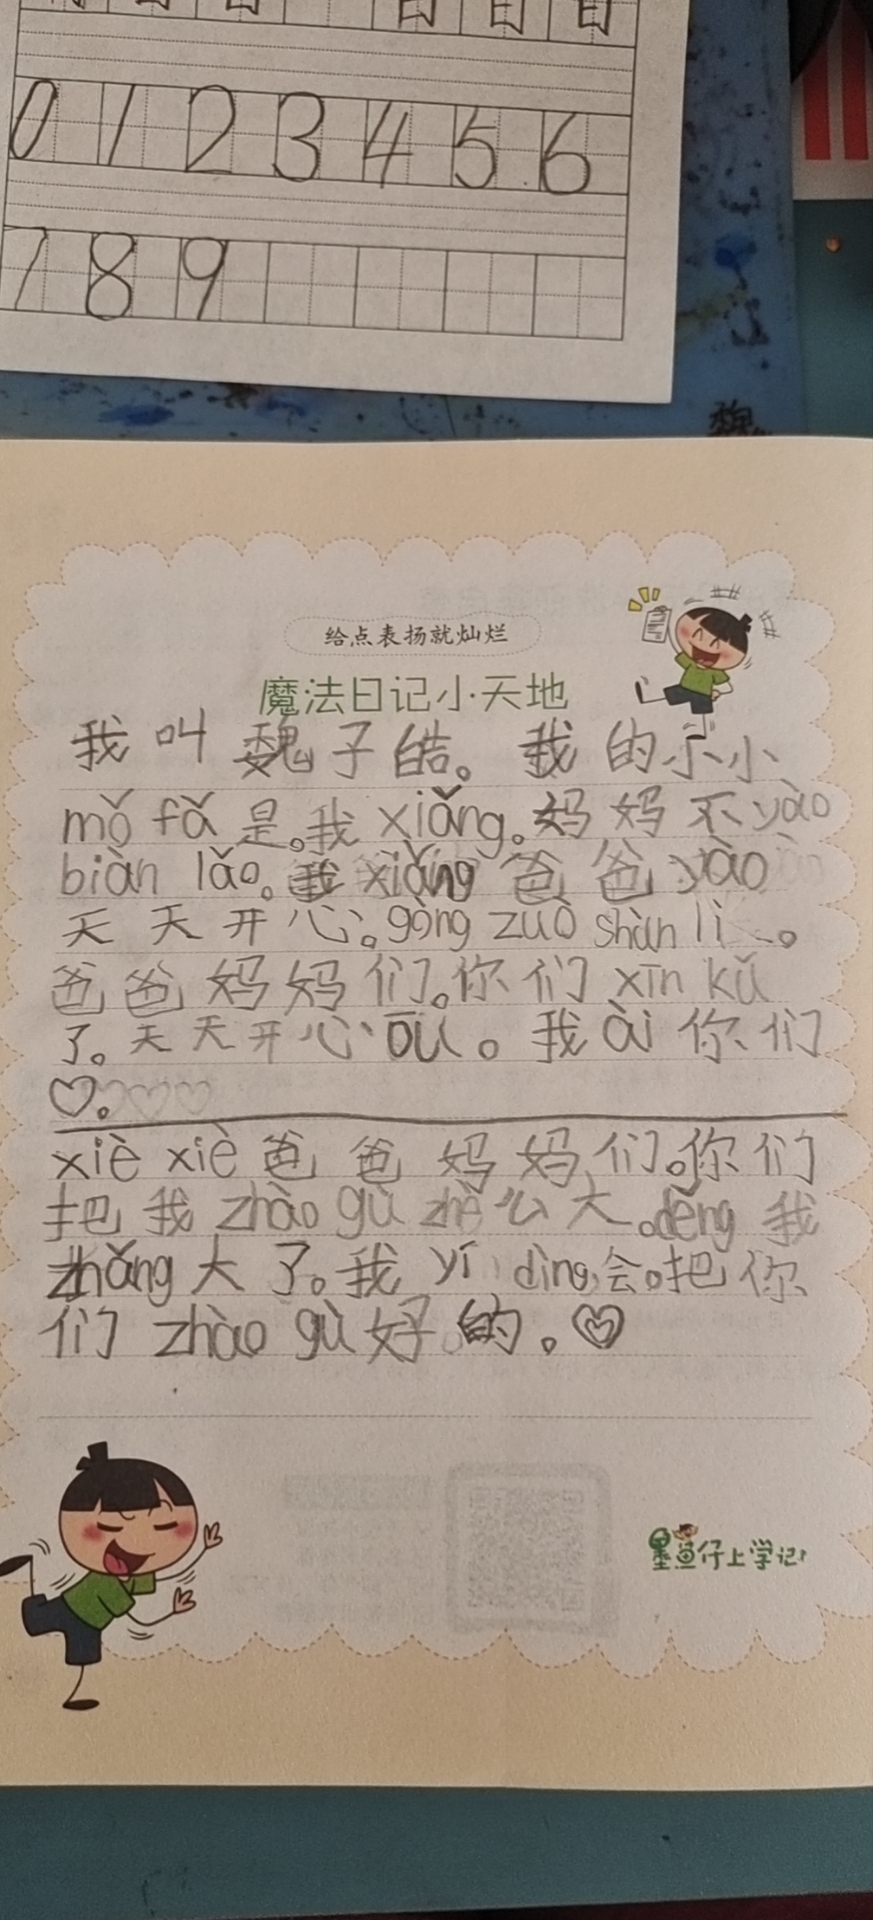 0 1 2 3 4 5 6
7 8 9
魏
给点表扬就灿烂
魔法日记小天地
我叫魏子皓。我的小小
mó fǎ 是。我 xiǎng。妈妈不 yào
biàn lǎo。我 xiǎng 爸爸 yào
天天开心。gōng zuò shùn lì 。
爸爸妈妈们。你们 xīn kǔ
了。天天开心 ōu。我 ài 你们
♡。
xiè xiè 爸爸妈妈们。你们
把我 zhào gù zhè 么大。děng 我
zhǎng 大了。我 yí dìng 会。把你
们 zhào gù 好的。♡
墨鱼仔上学记